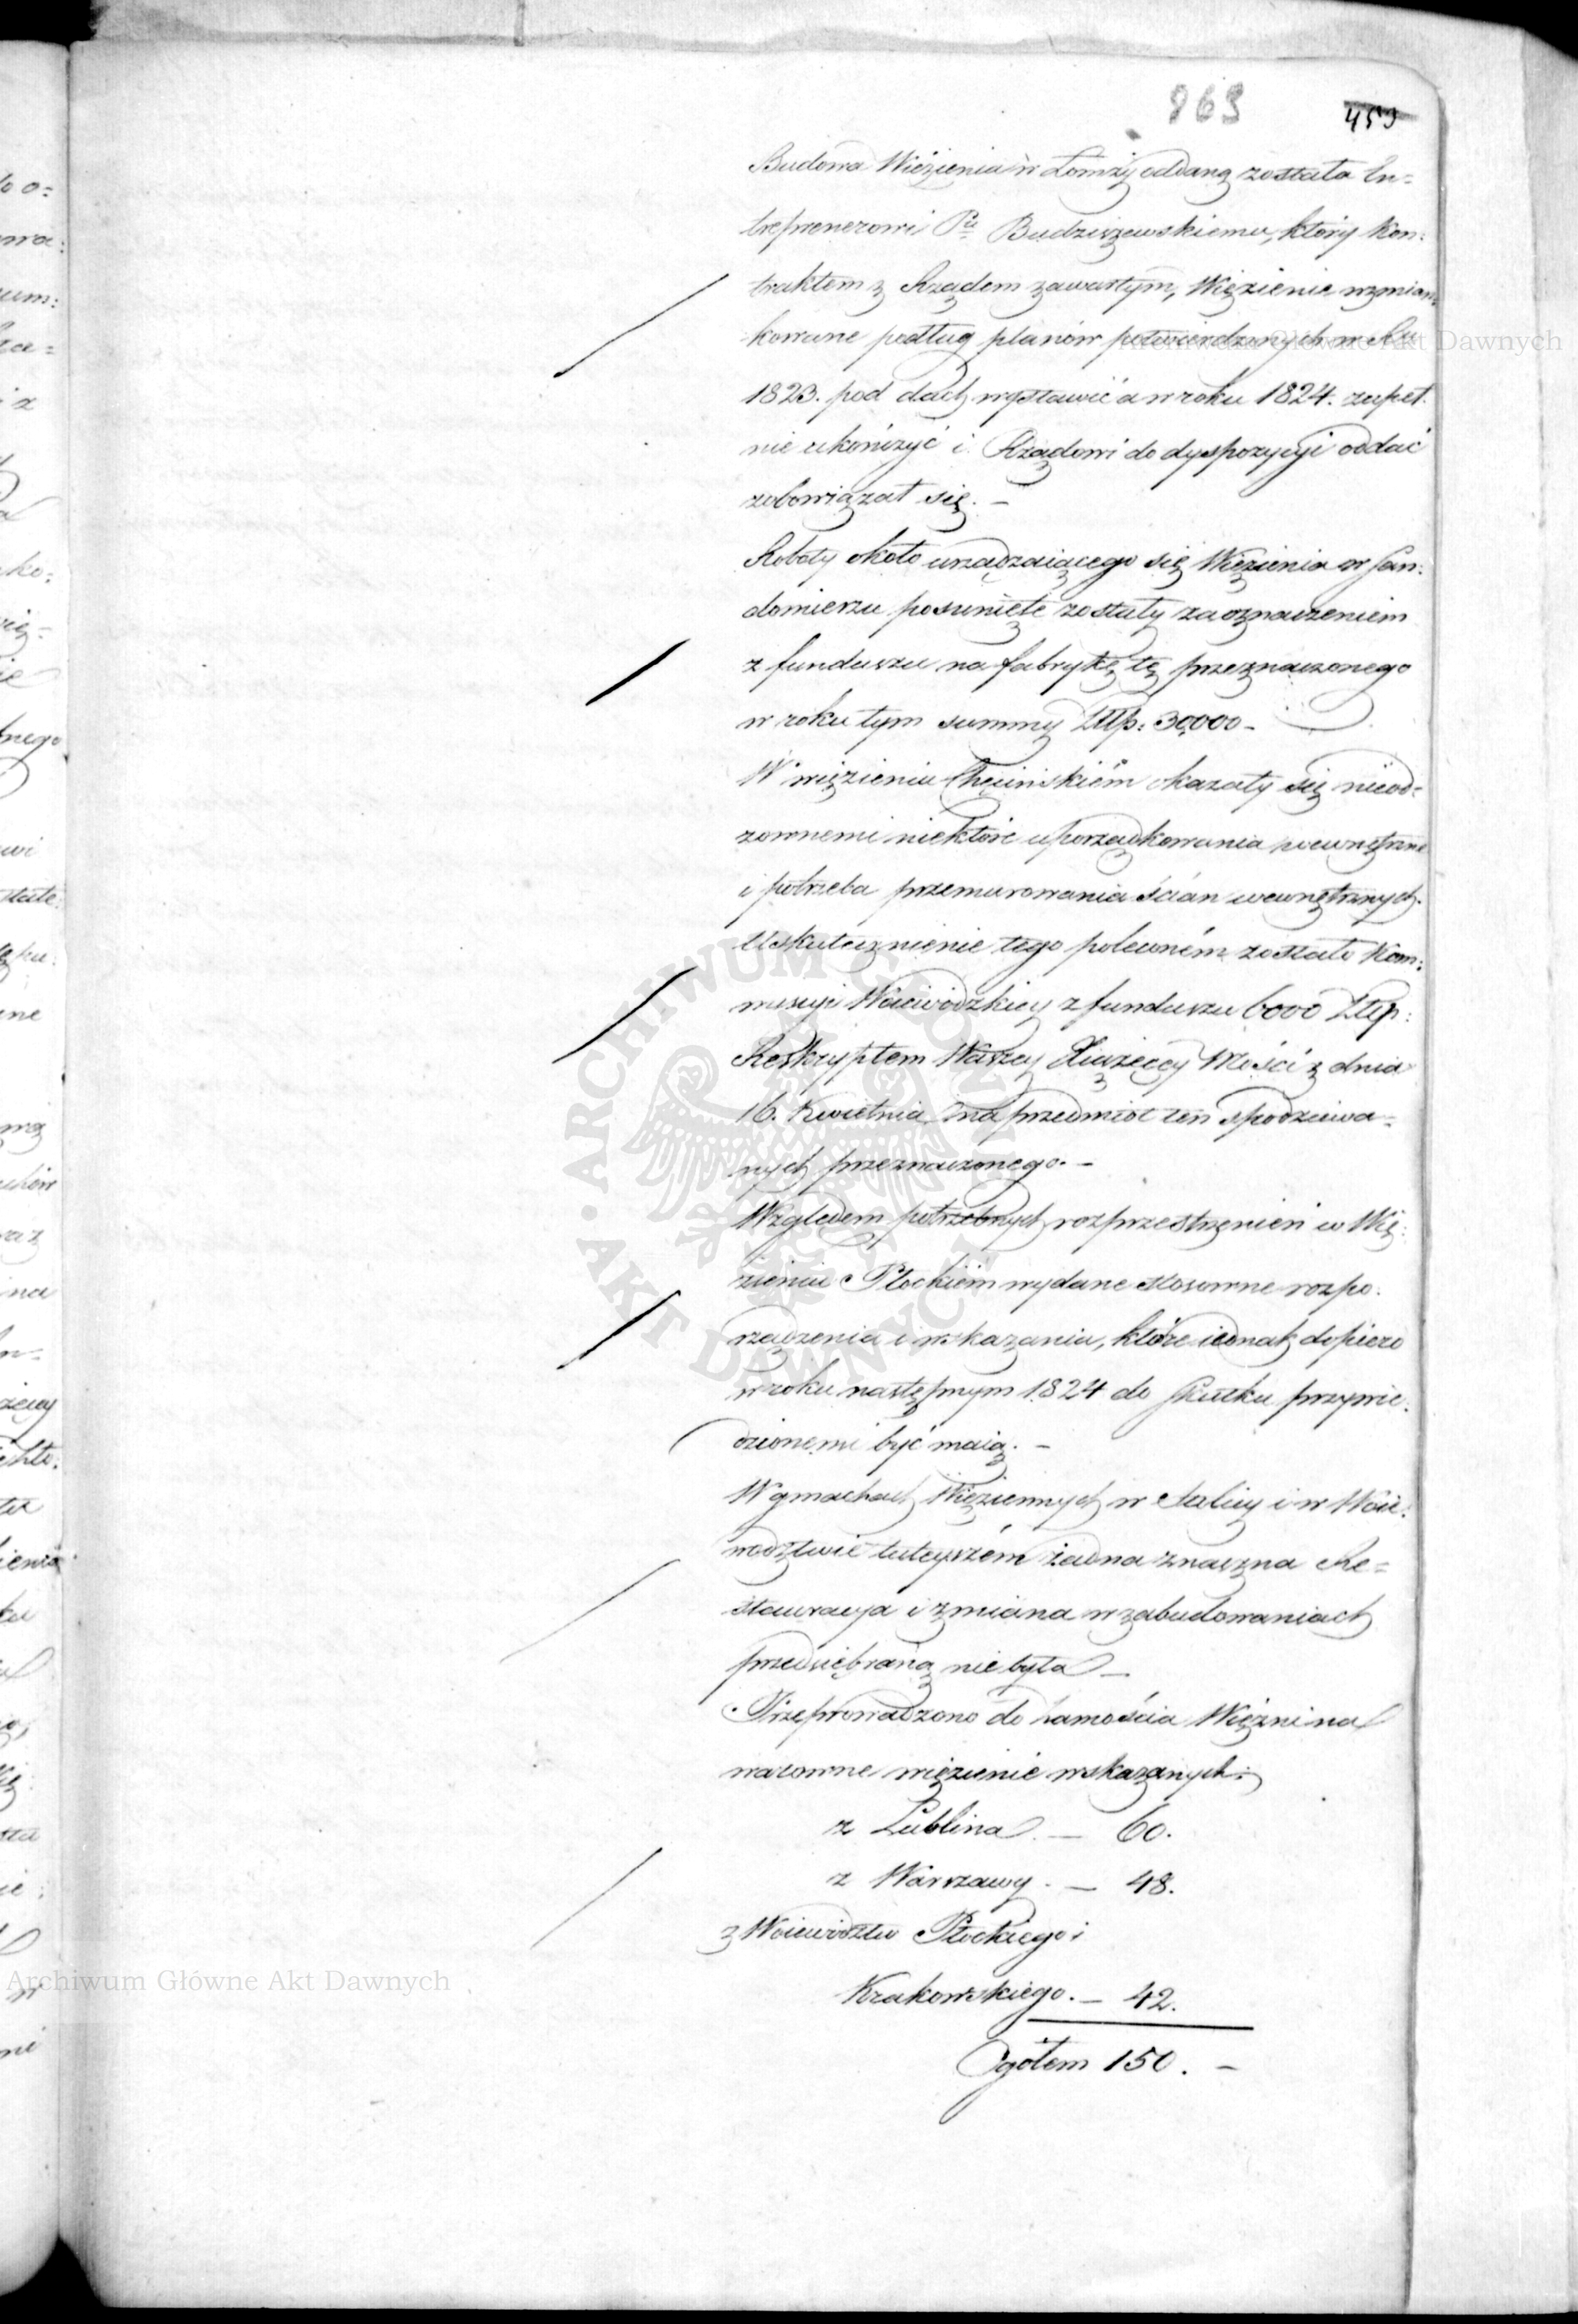 863
459
Budowa Więzienia w Łomży oddaną została En=
treprenerowi Pu Budziszewskiemu, który Kon:
traktem z Rządem zawartym, Więzienie wzmian
kowane podług planów potwierdzonych w Ru
1823. pod dach wystawić a w roku 1824. zupeł.
nie ukończyć i Rządowi do dyspozycyi oddać
zobowiązał się. —
Roboty około urządzaiącego się Więzienia w San:
domierzu posunięte zostały za oznaczeniem
z funduszu na fabrykę tę przeznaczonego
w roku tym summy Złtp: 30,000 —
W więzieniu Chęcińskiém okazały się nieod=
zownemi niektóre uporządkowania wewnętrzne
i potrzeba przemurowania ścian wewnętrznych.
Uskutecznienie tego poleconém zostało Kom:
missyi Woiewódzkiey z funduszu 6000 Złtp:
Reskryptem Waszey Xiążęcey Mości z dnia
16. Kwietnia na przedmiot ten spodziewa=
nych przeznaczonego. —
Względem potrzebnych rozprzestrzenień w Wię:
zieniu Płockiém wydane stosowne rozpo.
rządzenia i wskazania, które iednak dopiero
w roku następnym 1824 do skutku przywie.
dzionemi być maią. —
W gmachach Więziennych w Stolicy i w Woie:
wodztwie tuteyszém żadna znaczna Re=
stauracya i zmiana w zabudowaniach
przedsiębraną nie była —
Przeprowadzono do Zamościa Więźni na
warowne więzienie wskazanych:
z Lublina. — 60.
z Warszawy. — 48.
z Woiewództw Płockiego i
Krakowskiego. — 42.
Ogółem 150. —
Archiwum Główne Akt Dawnych
Archiwum Główne Akt Dawnych
ARCHIWUM GŁÓWNE AKT DAWNYCH